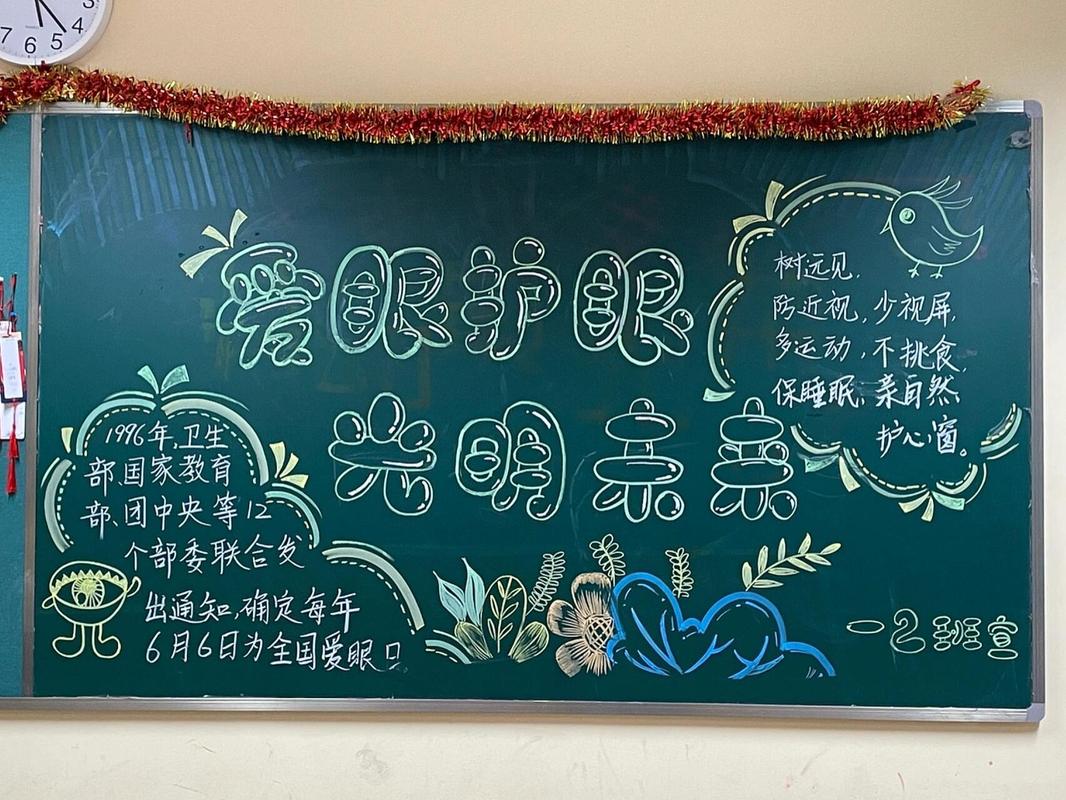 7 6 5 4
3
爱眼护眼
光明未来
树远见,
防近视,少视屏,
多运动,不挑食,
保睡眠,亲自然,
护心窗。
1996年,卫生
部、国家教育
部、团中央等12
个部委联合发
出通知,确定每年
6月6日为全国爱眼日
一2班宣